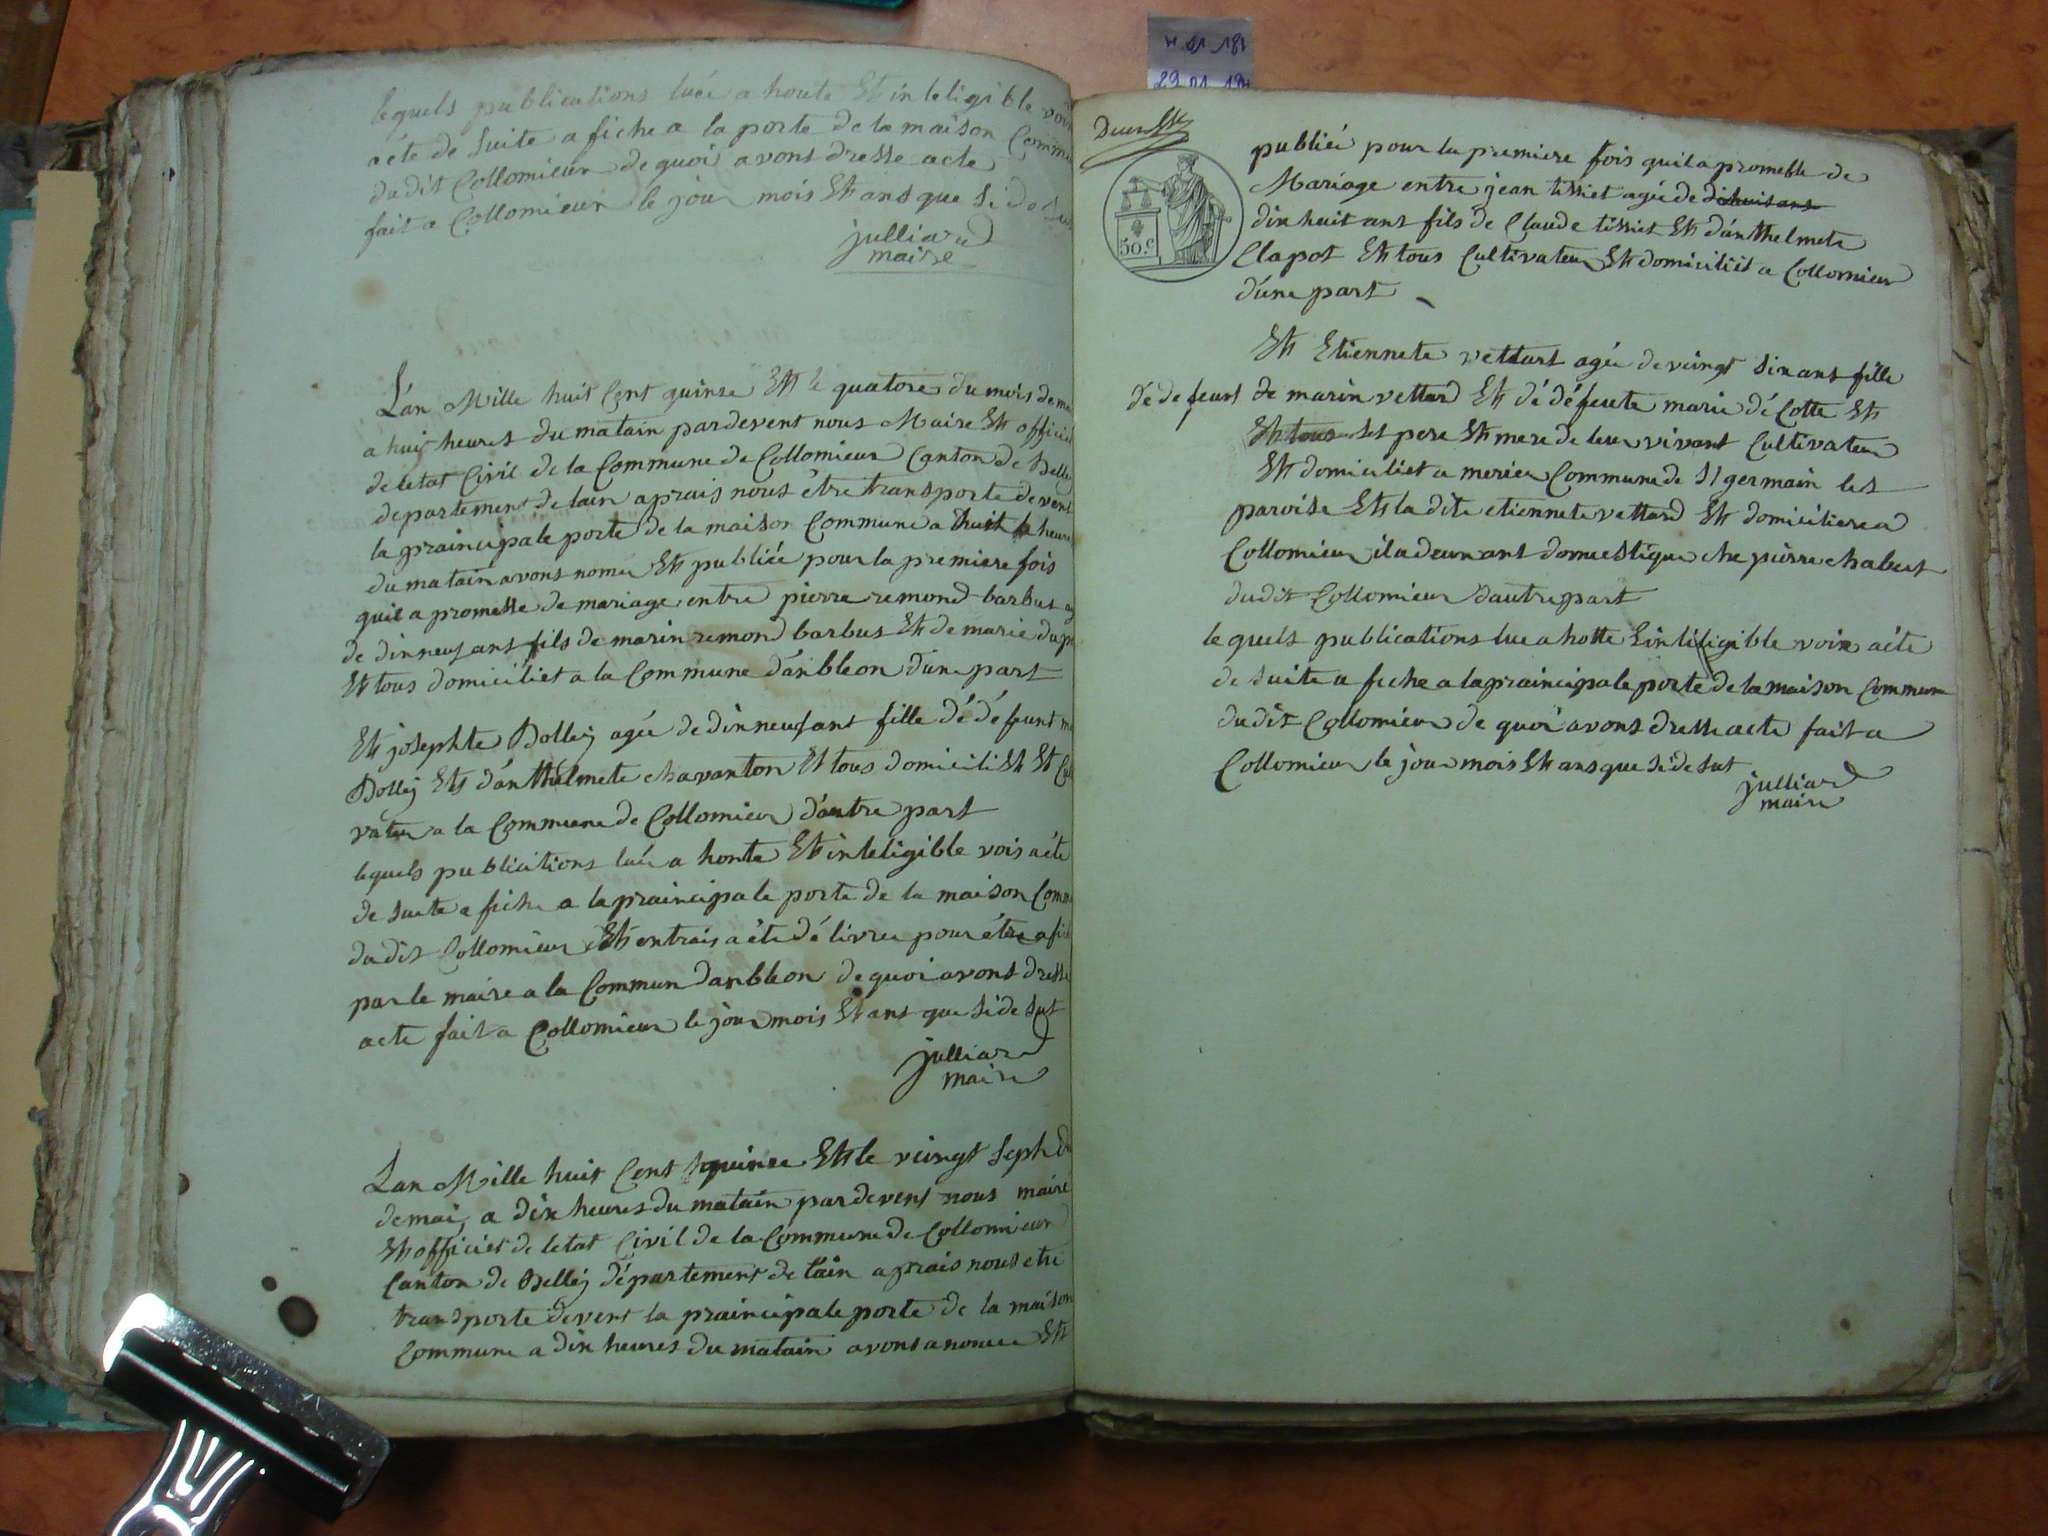 lequels publications luée a houte Et inteligible voix
acte de Suite afiche a la porte de la maison Commu
du dit Collomieur de quoi avons dresse acte
fait a Collomieur le jour mois Et ans que Si de Sus
julliard
maire
L'an Mille huit Cent quinse Et le quatorse du mois de mai
a huit heures du matain pardevent nous Maire Et officié
de letat Civil de la Commune de Collomieur Canton de Belley
departement de lain aprais nous être transporte devent
la praincipale porte de la maison Commune a huit heure
du matain avons nomée Et publiée pour la premiere fois
quil a promesse de mariage entre pierre remond barbut ag
de dinneuf ans fils de marin remond barbus Et de marie dup
Et tous domiciliét a la Commune d'anbleon d'une part
Et josephte Bolley agée de dinneuf ans fille dé défeunt m
Bolley Et d'anthelmete chavanton Et tous domiciliEt Et Cul
vateur a la Commune de Collomieur d'autre part
lequels publicitions luée a honte Et inteligible vois acte
de Suete afiche a la praincipale porte de la maison Comm
du dit Collomieur Et entrais a été délivre pour être afich
par le maire a la Commun danbleon de quoi avons dresse
acte fait a Collomieur le jour mois Et ans que Si de Sut
julliard
maire
Lan Mille huit Cent quinse Et le veingt Sept du
de mai a dix heures du matain pardevent nous maire
Et officiér de letat Civil de la Commune de Collomieur
Canton de Belley département de l'ain aprais nous etre
transporte devent la praincipale porte de la maison
Commune a dix heures du matain avons anoncée Et
50.c
publiée pour la premiere fois quil a promesse de
Mariage entre jean tissiet agée de dihuis ans
dix huit ans fils de Claude tissiet Et d'anthelmete
Clapot Et tous Cultivateur Et domiciliét a Collomieur
d'une part
Et Etiennete vettart agée de veingt Six ans fille
dé defeunt de marin vettard Et dé défeute marie dé Cotte Et
Et tous Set pere Et mere de leur vivant Cultivateur
Et domiciliét a merieu Commune de St germain let
paroise Et la dite etiennete vettard Et domiciliere a
Collomieur il a deux ans domestique che pierre chabert
du dit Collomieur d'autre part
lequels publications lue a hotte Et inteligible voix acte
de Suite afiche a la praincipale porte de la maison Commune
du dit Collomieur de quoi avons dresse acte fait a
Collomieur le jour mois Et ans que Si de Sut
julliard
maire